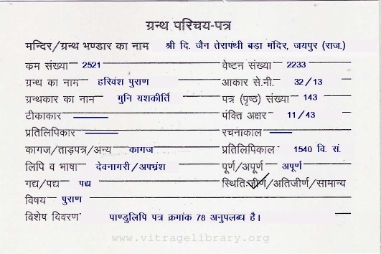 ग्रन्थ परिचय-पत्र
मन्दिर/ग्रन्थ भण्डार का नाम श्री दि. जैन तेरापंथी बडा मंदिर, जयपुर (राज.)
क्रम संख्या 2521 वेष्टन संख्या 2233
ग्रन्थ का नाम हरिवंश पुराण आकार से.मी. 32/13
ग्रन्थकार का नाम मुनि यशकीर्ति पत्र (पृष्ठ) संख्या 143
टीकाकार पंक्ति अक्षर 11/43
प्रतिलिपिकार रचनाकाल
कागज/ताड़पत्र/अन्य कागज प्रतिलिपिकाल 1540 वि. सं.
लिपि व भाषा देवनागरी/अपभ्रंश पूर्ण/अपूर्ण अपूर्ण
गद्य/पद्य पद्य स्थिति:जीर्ण/अतिजीर्ण/सामान्य
विषय पुराण
विशेष विवरण पाण्डुलिपि पत्र क्रमांक 78 अनुपलब्ध है।
www.vitragelibrary.org